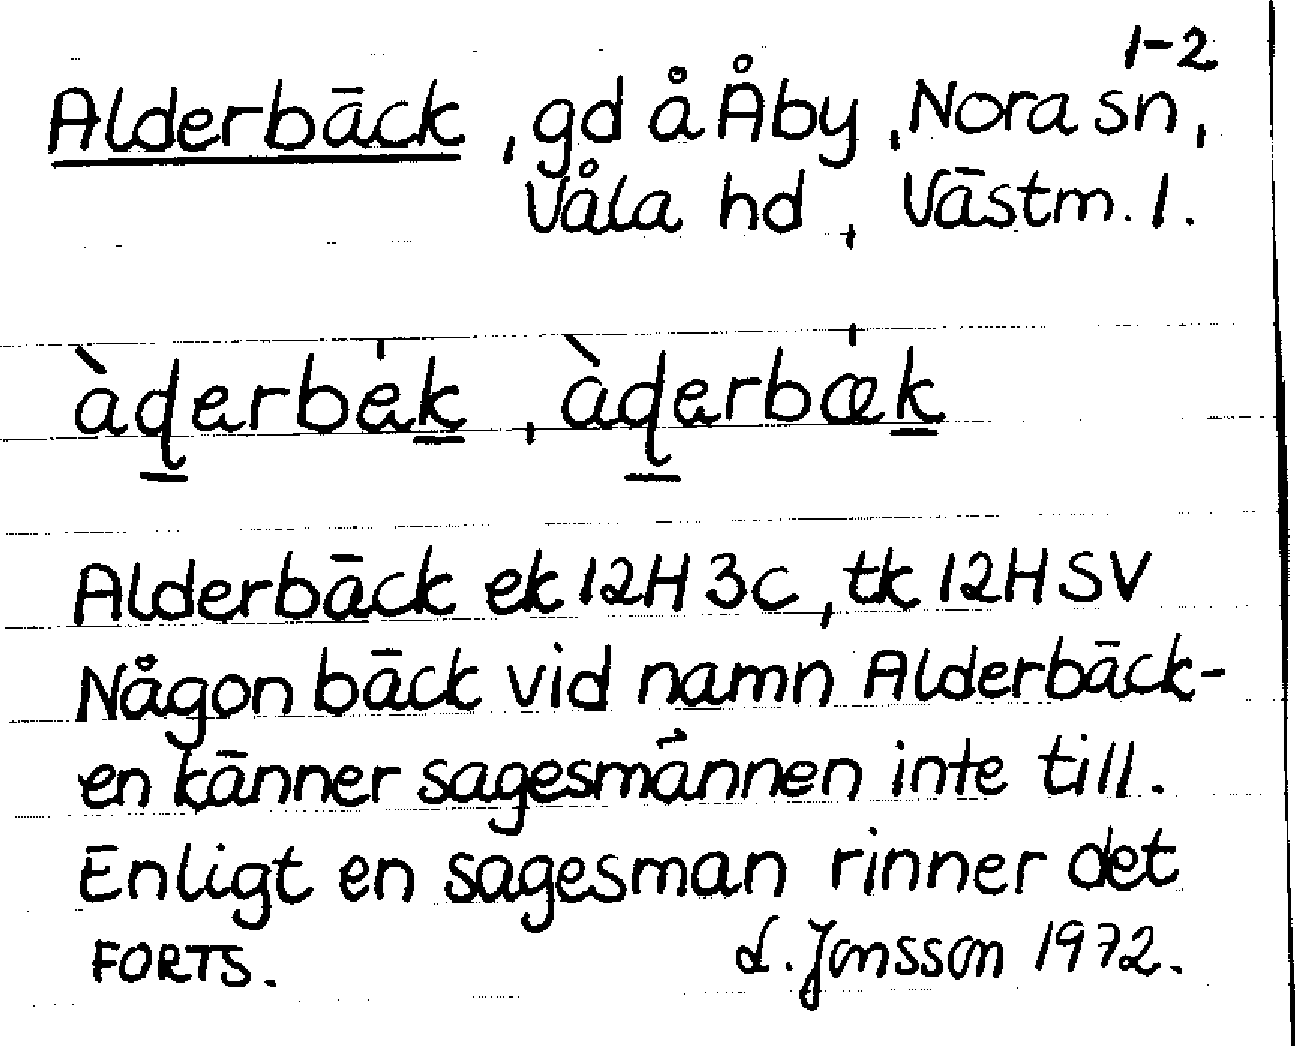 1-2
Alderbäck, gd å Åby, Nora sn,
Våla hd, Västm. l.
àḍerbék, àḍerbæk
Alderbäck ek 12H 3c, tk 12H SV
Någon bäck vid namn Alderbäck-
en känner sagesmännen inte till.
Enligt en sagesman rinner det
FORTS. L. Jonsson 1972.